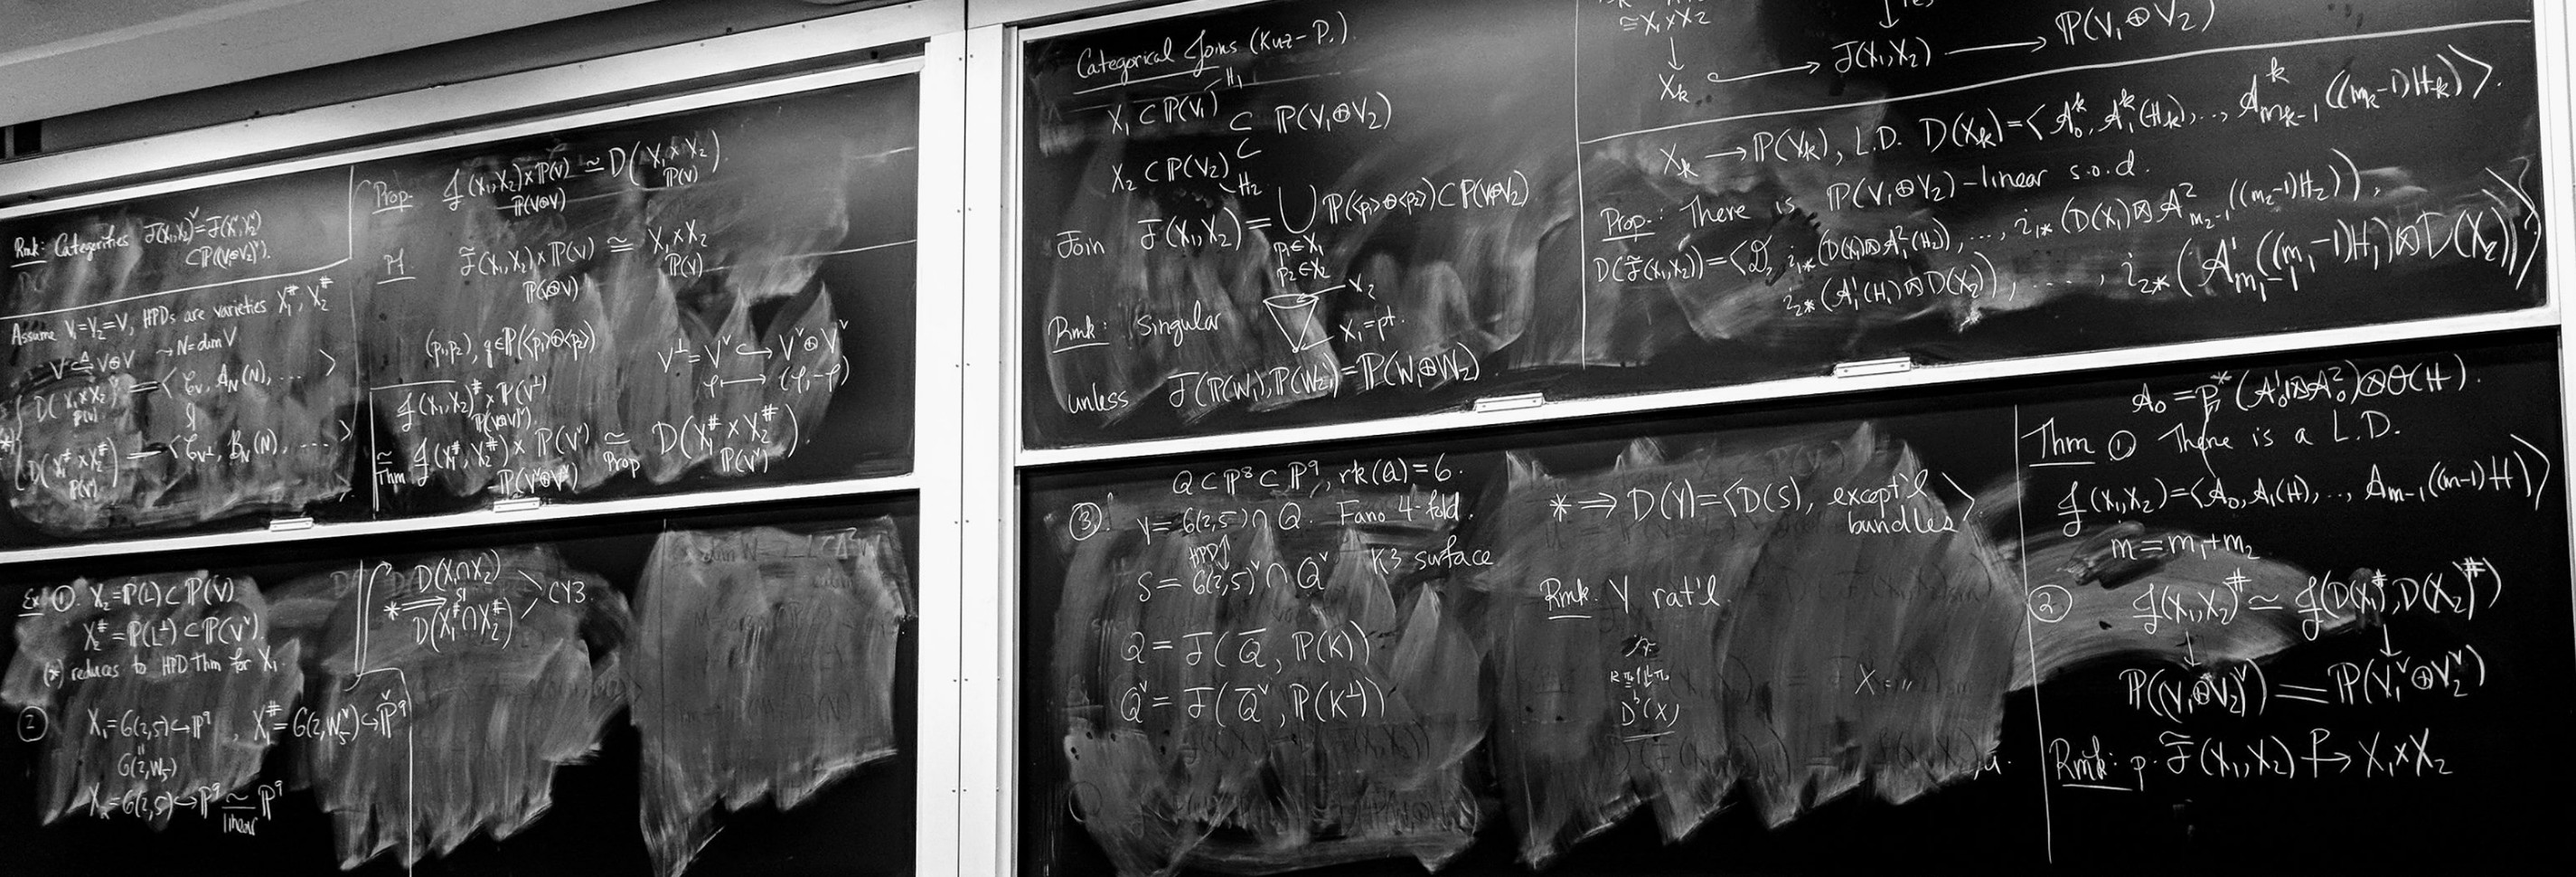 Rmk: Categorifies J(X₁,X₂)ᵛ=J(X₁ᵛ,X₂ᵛ)
⊂P((V₁⊕V₂)ᵛ).
Assume V₁=V₂=V, HPDs are varieties X₁^#, X₂^#
V ↪^Δ V⊕V → N=dim V
D(X₁×_{P(V)}X₂) = ⟨𝒞_V, A_N(N), ... ⟩
D(X₁^#×_{P(Vᵛ)}X₂^#) = ⟨𝒞_{V^⊥}, B_N(N), .... ⟩
Prop. 𝒥(X₁,X₂)×_{P(V⊕V)}P(V) ≃ D(X₁×_{P(V)}X₂).
Pf J̃(X₁,X₂)×_{P(V⊕V)}P(V) ≅ X₁×_{P(V)}X₂
(p₁,p₂), q∈P(⟨p₁⟩⊕⟨p₂⟩)
V^⊥=Vᵛ ↪ Vᵛ⊕Vᵛ
φ ↦ (φ,-φ)
𝒥(X₁,X₂)^# ×_{P(Vᵛ⊕Vᵛ)} P(V^⊥)
≃_Thm 𝒥(X₁^#,X₂^#)×_{P(Vᵛ⊕Vᵛ)}P(Vᵛ) ≃_Prop D(X₁^#×_{P(Vᵛ)}X₂^#).
Ex. ①. X₂=P(L)⊂P(V)
X₂^#=P(L^⊥)⊂P(Vᵛ).
(*) reduces to HPD Thm for X₁.
② X₁=G(2,5)↪P⁹, X₁^#=G(2,W₅ᵛ)↪P̌⁹
G(2,W₅)
X₂=G(2,5)↪P⁹ ≃_linear P⁹
* ⟹ D(X₁∩X₂) ≃ D(X₁^#∩X₂^#) > CY3.
Categorical Joins (Kuz-P.).
X₁⊂P(V₁) H₁
⊂ P(V₁⊕V₂)
X₂⊂P(V₂) H₂
Join J(X₁,X₂)=⋃_{p₁∈X₁ p₂∈X₂} P(⟨p₁⟩⊕⟨p₂⟩)⊂P(V₁⊕V₂)
Rmk: Singular
X₂
X₁=pt.
unless J(P(W₁),P(W₂))=P(W₁⊕W₂)
≅X₁×X₂
↓
X_k ↪ J̃(X₁,X₂) → P(V₁⊕V₂)
X_k → P(V_k), L.D. D(X_k)=⟨A₀^k, A₁^k(H_k), .., A^k_{m_k-1}((m_k-1)H_k)⟩.
Prop.: There is P(V₁⊕V₂)-linear s.o.d.
D(J̃(X₁,X₂))=⟨𝒟, i₁*(D(X₁)⊠A₁²(H₂)), ..., i₁*(D(X₁)⊠A²_{m₂-1}((m₂-1)H₂)),
i₂*(A₁¹(H₁)⊠D(X₂)), ...., i₂*(A¹_{m₁-1}((m₁-1)H₁)⊠D(X₂))⟩
③. Q⊂P⁸⊂P⁹, rk(Q)=6.
Y=G(2,5)∩Q. Fano 4-fold.
HPD↕
S=G(2,5)ᵛ∩Qᵛ K3 surface
Q=J(Q̄, P(K))
Qᵛ=J(Q̄ᵛ, P(K^⊥))
* ⟹ D(Y)=⟨D(S), except'l bundles⟩
Rmk. Y rat'l.
Dᵇ(X)
A₀=p*(A₀¹⊠A₀²)⊗O(H).
Thm ① There is a L.D.
𝒥(X₁,X₂)=⟨A₀, A₁(H), .., A_{m-1}((m-1)H)⟩
m=m₁+m₂
② 𝒥(X₁,X₂)^# ≃ 𝒥(D(X₁)^#, D(X₂)^#)
↓ ↓
P((V₁⊕V₂)ᵛ) = P(V₁ᵛ⊕V₂ᵛ)
Rmk: p. J̃(X₁,X₂) →^P X₁×X₂